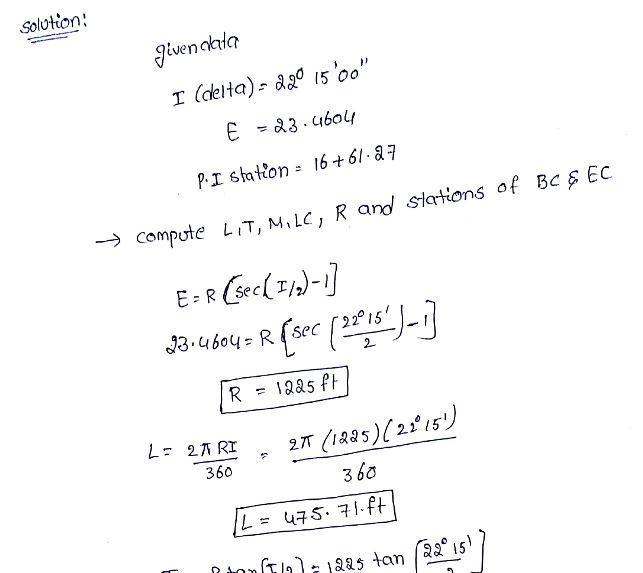 Solution:
given data
I (delta) = 22° 15' 00"
E = 23.4604
P.I station = 16+61.27
→ compute L, T, M, LC, R and stations of BC & EC
E = R [sec(I/2)-1]
23.4604 = R [sec (22° 15' / 2) - 1]
R = 1225 ft
L = 2π RI / 360 = 2π (1225)(22° 15') / 360
L = 475.71.ft
R tan [I/2] = 1225 tan [22° 15' / 2]